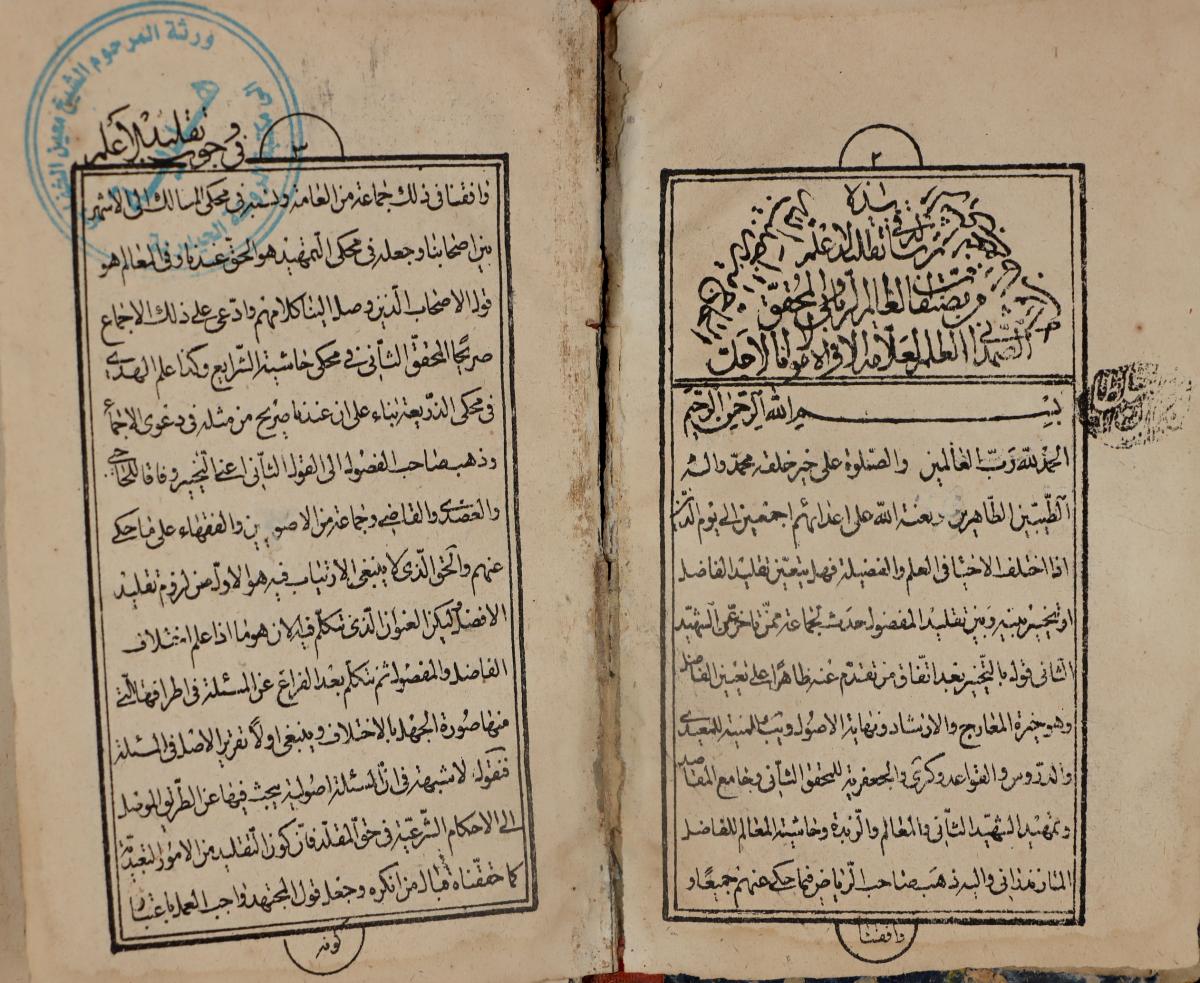 ٢
هذه
رسالة في تقليد الاعلم
من مصنفات العالم الرباني والمحقق
الصمداني العلم العلامة
بسم الله الرحمن الرحيم
الحمد لله رب العالمين والصلوة على خير خلقه محمد واله
الطيبين الطاهرين ولعنة الله على اعدائهم اجمعين الى يوم الدين
اذا اختلف الاحياء في العلم والفضيلة فهل يتعين تقليد الفاضل
او يتخير بينه وبين تقليد المفضول حدث لجماعة ممن تاخر عن الشهيد
الثاني قول بالتخيير بعد اتفاق من تقدم عنه ظاهرا على تعيين الفاضل
وهو خيرة المعارج والارشاد ونهاية الاصول والتهذيب والمنية للعميدي
والدروس والقواعد وكرى والجعفرية للمحقق الثاني وجامع المقاصد
وتمهيد الشهيد الثاني والمعالم والزبدة وحاشية المعالم للفاضل
المازندراني واليه ذهب صاحب الرياض فيما حكى عنهم جميعا و
وافقنا
٣
في وجوب تقليد الاعلم
ورثة المرحوم الشيخ معين
وافقنا في ذلك جماعة من العامة ونسبه في محكى المسالك الى الاشهر
بين اصحابنا وجعله في محكى التمهيد هو الحق عندنا وفي المعالم هو
قول الاصحاب الذين وصل الينا كلامهم وادعى على ذلك الاجماع
صريحا المحقق الثاني في محكى حاشية الشرايع وكذا علم الهدى
في محكى الذريعة بناء على ان عندنا صريح من مثله في دعوى الاجماع
وذهب صاحب الفصول الى القول الثاني اعني التخيير وفاقا للحاجبي
والعضدي والقاضي وجماعة من الاصوليين والفقهاء على ما حكى
عنهم والحق الذي لا ينبغي الارتياب فيه هو الاول من لزوم تقليد
الافضل وليكن العنوان الذي نتكلم فيه الان هو ما اذا علم اختلاف
الفاضل والمفضول ثم نتكلم بعد الفراغ عن المسئلة في اطرافها التي
منها صورة الجهل بالاختلاف وينبغي اولا تقرير الاصل في المسئلة
فنقول لا شبهة في ان المسئلة اصولية يبحث فيها عن الطريق الموصل
الى الاحكام الشرعية في حق المقلد فان كون التقليد من الامور التعبدية
كما حققناه قبال من انكره وجعل قول المجتهد واجب العمل باعتبار
كونه